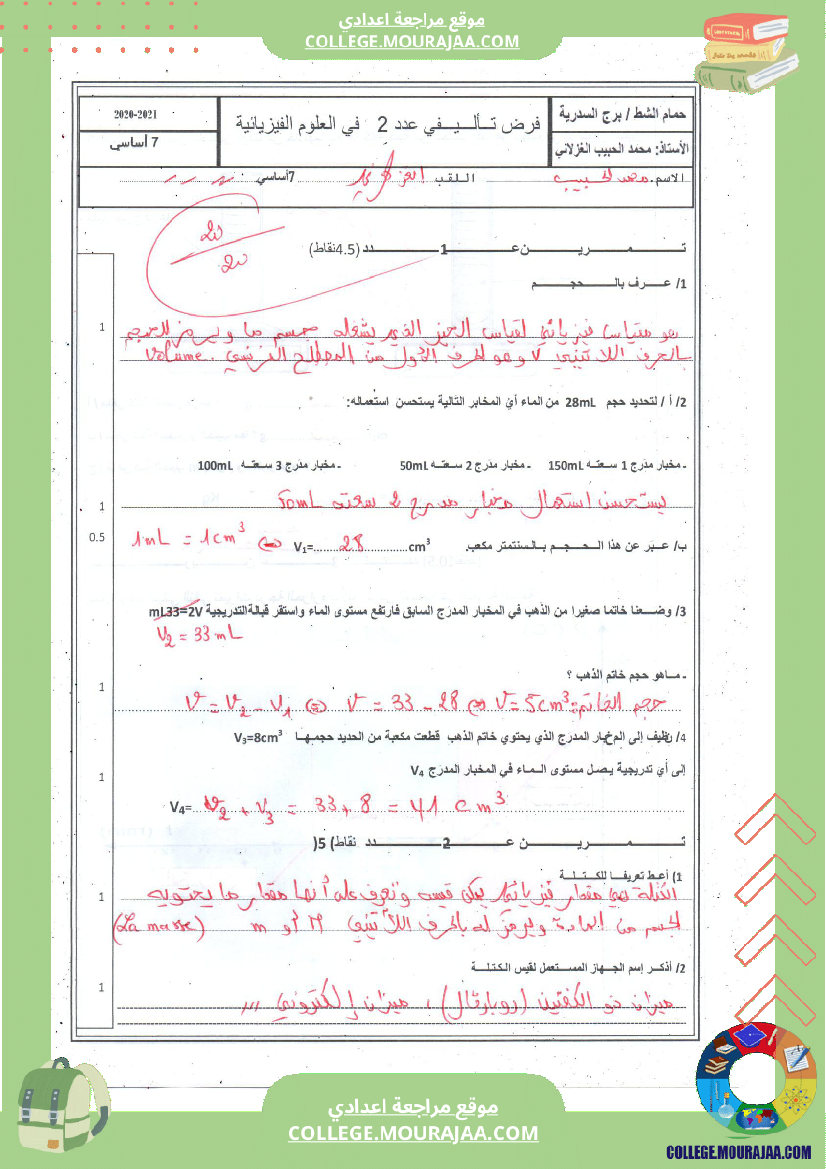 موقع مراجعة اعدادي
COLLEGE.MOURAJAA.COM
حمام الشط / برج السدرية
الأستاذ: محمد الحبيب الغزلاني
فرض تـأليـــفي عدد 2 في العلوم الفيزيائية
2020-2021
7 أساسي
الاسم: محمد الحبيب اللقب الغزلاني 7أساسي
20
20
تـمـريـن عـ1ـدد (4.5نقاط)
1/ عـرف بالـحجـم
1
هو مقياس فيزيائي لقياس الحيز الذي يشغله جسم ما ويرمز للحجم
بالحرف اللاتيني V وهو الحرف الأول من المصطلح الفرنسي Volume.
2/ أ / لتحديد حجم 28mL من الماء أيّ المخابر التالية يستحسن استعماله:
- مخبار مدرّج 1 سعتـه 150mL - مخبار مدرّج 2 سعتـه 50mL - مخبار مدرّج 3 سعتـه 100mL
1
يستحسن استعمال مخبار مدرج 2 سعته 50mL
0.5
ب/ عبّر عن هذا الـحـجـم بـالسنتمتر مكعب. V₁=........28..............cm³ ⇔ 1mL = 1cm³
3/ وضـعنا خاتما صغيرا من الذهب في المخبار المدرّج السابق فارتفع مستوى الماء واستقر قبالة التدريجية mL33=2V
V₂ = 33 mL
- مـاهو حجم خاتم الذهب ؟
1
حجم الخاتم: V = V₂ - V₁ ⇔ V = 33 - 28 ⇔ V = 5cm³
4/ نظيف إلى المخبار المدرّج الذي يحتوي خاتم الذهب قطعت مكعبة من الحديد حجمـهـا V₃=8cm³
إلى أي تدريجية يـصـل مستوى الـمـاء في المخبار المدرّج V₄
1
V₄= V₂ + V₃ = 33 + 8 = 41 cm³
تـمـريـن عـ2ـدد نقاط) 5(
1) أعـط تعريفـا للكـتـلـة
1
الكتلة هي مقدار فيزيائي يمكن قيسه ونعرف على أنها مقدار ما يحتويه
الجسم من المادة ويرمز له بالحرف اللاتيني M أو m (La masse)
2/ أذكـر إسم الجـهـاز المسـتـعمل لقيس الكـتلـة
1
ميزان ذو الكفتين (روبارفال) ، ميزان إلكتروني ...
موقع مراجعة اعدادي
COLLEGE.MOURAJAA.COM
COLLEGE.MOURAJAA.COM